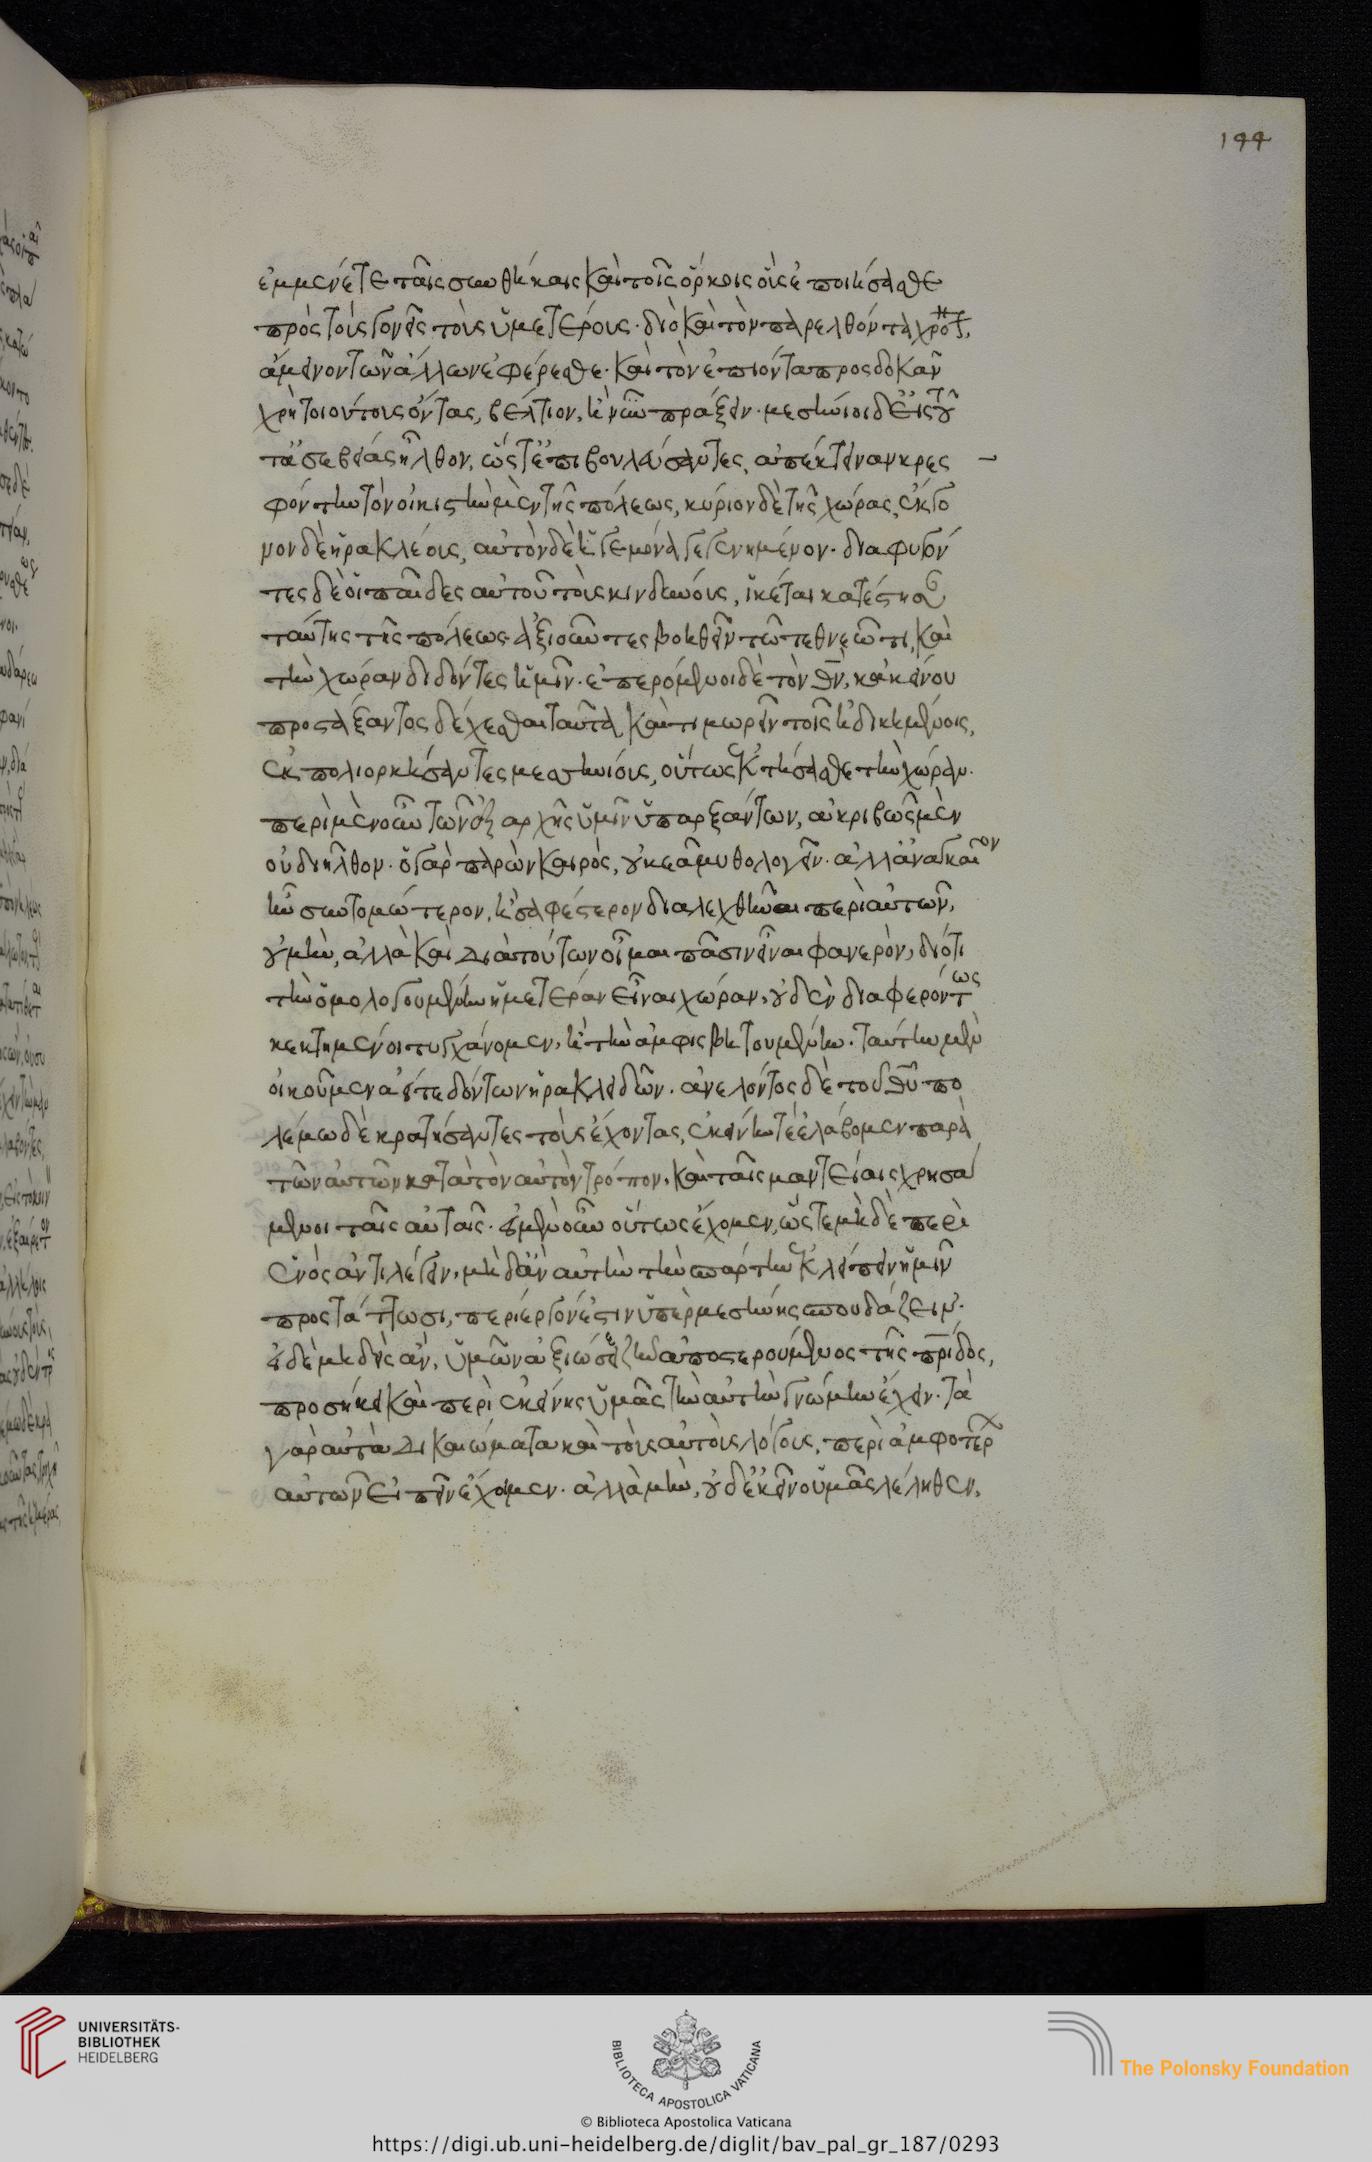 144
ἐμμενεῖτε ταῖς συνθήκαις καὶ τοῖς ὅρκοις οἷς ἐποιήσασθε
πρὸς τοὺς γονεῖς τοὺς ὑμετέρους. διὸ καὶ τὸν παρελθόντα χρόνον
ἄμεινον τῶν ἄλλων ἐφέρεσθε. καὶ τὸν ἐπιόντα προσδοκᾶν
χρὴ τοιούτους ὄντας, βέλτιον, ἢ νῦν πράξειν. μεσήνιοι δ' εἰς τοῦ
τ' ἀσεβείας ἦλθον, ὥστ' ἐπιβουλεύσαντες, ἀπέκτειναν κρες
φόντην τὸν οἰκιστὴν μὲν τῆς πόλεως, κύριον δὲ τῆς χώρας, ἔκγο
νον δὲ ἡρακλέους, αὐτὸν δὲ ἡγεμόνα γεγενημένον. διαφυγόν
τες δὲ οἱ παῖδες αὐτοῦ τοὺς κινδύνους, ἱκέται κατέστησαν
ταύτης τῆς πόλεως ἀξιοῦντες βοηθεῖν τῷ τεθνεῶτι, καὶ
τὴν χώραν διδόντες ἡμῖν. ἐπερόμενοι δὲ τὸν θν, κἀκείνου
προστάξαντος δέχεσθαι ταῦτα καὶ τιμωρεῖν τοῖς ἠδικημένοις,
ἐκπολιορκήσαντες μεσηνίους, οὕτως ἐκτήσασθε τὴν χώραν.
περὶ μὲν οὖν τῶν ἐξ ἀρχῆς ὑμῖν ὑπαρξάντων, ἀκριβῶς μὲν
οὐ διῆλθον. ὁ γὰρ παρὼν καιρὸς, οὐκ ἐᾷ μυθολογεῖν. ἀλλ' ἀναγκαῖον
ἦν συντομώτερον, ἢ σαφέστερον διαλεχθῆναι περὶ αὐτῶν,
οὐ μὴν, ἀλλὰ καὶ διὰ τούτων οἶμαι πᾶσιν εἶναι φανερὸν, διότι
τὴν ὁμολογουμένην ἡμετέραν εἶναι χώραν, οὐδὲν διαφερόντως
κεκτημένοι τυγχάνομεν, ἢ τὴν ἀμφισβητουμένην. ταύτην μὲν
οἰκοῦμεν ἅτε δόντων ἡρακλειδῶν. ἀνελόντος δὲ τοῦ θῦ πο
λέμω δὲ κρατήσαντες τοὺς ἔχοντας, ἐκείνην τὲ ἐλάβομεν παρὰ
τῶν αὐτῶν κατὰ τὸν αὐτὸν τρόπον, καὶ ταῖς μαντείαις χρησά
μενοι ταῖς αὐταῖς. εἰ μὲν οὖν οὕτως ἔχομεν, ὥστε μηδὲ περὶ
ἑνὸς ἀντιλέγειν, μηδ' ἂν αὐτὴν τὴν σπάρτην ἐκλείπειν ἡμῖν
προστάττωσι, περίεργόν ἐστιν ὑπὲρ μεσήνης σπουδάζειν.
εἰ δὲ μηδεὶς ἂν, ὑμῶν ἀξιώσειε ζῆν ἀποστερούμενος τῆς πρίδος,
προσήκει καὶ περὶ ἐκείνης ὑμᾶς τὴν αὐτὴν γνώμην ἔχειν. τὰ
γὰρ αὐτὰ δικαιώματα καὶ τοὺς αὐτοὺς λόγους, περὶ ἀμφοτέρων
αὐτῶν εἰπεῖν ἔχομεν. ἀλλὰ μὴν, οὐδ' ἐκεῖν' οὐμᾶς λέληθεν,
UNIVERSITÄTS-
BIBLIOTHEK
HEIDELBERG
BIBLIOTECA APOSTOLICA VATICANA
The Polonsky Foundation
© Biblioteca Apostolica Vaticana
https://digi.ub.uni-heidelberg.de/diglit/bav_pal_gr_187/0293